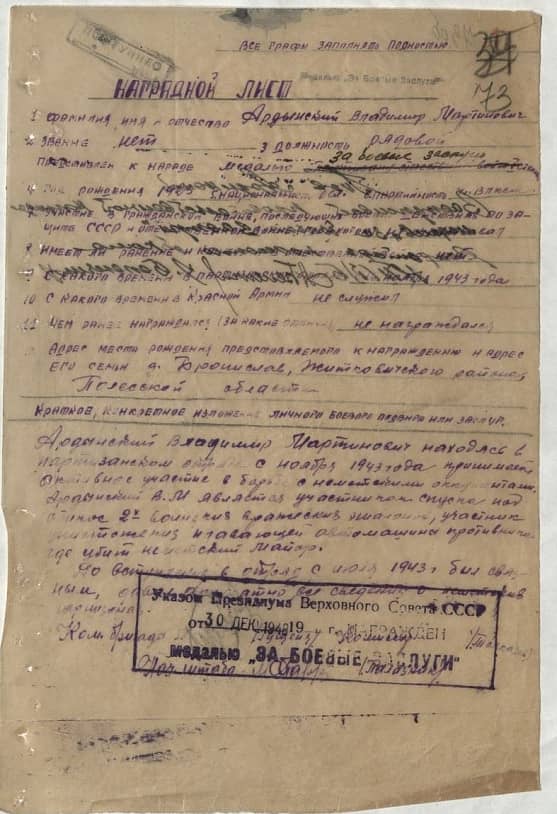 ПОСТУПИЛО
ВСЕ ГРАФЫ ЗАПОЛНЯТЬ ПОЛНОСТЬЮ
Медалью „За Боевые Заслуги"
НАГРАДНОЙ ЛИСТ
73
1 ФАМИЛИЯ, ИМЯ и ОТЧЕСТВО Ардынский Владимир Мартинович
2 ЗВЕНИЕ нет 3 ДОЛЖНОСТЬ рядовой
ПРЕДСТАВЛЕН К НАГРАДЕ медалью за боевые заслуги
4 ГОД РОЖДЕНИЯ 1903 5 НАЦИОНАЛЬНОСТЬ бел. 6 ПАРТИЙНОСТЬ
УЧАСТИЕ В ГРАЖДАНСКОЙ ВОЙНЕ, ПОСЛЕДУЮЩИХ ПО ЗА-
ЩИТЕ СССР И
8 ИМЕЕТ ЛИ РАНЕНИЕ И нет
9 С КАКОГО ВРЕМЕНИ В ноября 1943 года
10 С КАКОГО ВРЕМЕНИ В КРАСНОЙ АРМИИ не служил
11 ЧЕМ РАНЕЕ НАГРАЖДАЛСЯ (ЗА КАКИЕ ОТЛИЧИЯ) не награждался
АДРЕС МЕСТА РОЖДЕНИЯ ПРЕДСТАВЛЯЕМОГО К НАГРАЖДЕНИЮ И АДРЕС
ЕГО СЕМЬИ д. Бронислав, Житковичского района,
Полесской области
КРАТКОЕ, КОНКРЕТНОЕ ИЗЛОЖЕНИЕ ЛИЧНОГО БОЕВОГО ПОДВИГА ИЛИ ЗАСЛУГ.
Ардынский Владимир Мартинович находясь в
партизанском отряде с ноября 1943 года принимал
активное участие в борьбе с немецкими оккупантами.
Ардынский В.М является участником спуска под
откос 2х воинских вражеских эшелонов, участник
уничтожения плавающей автомашины противника
где убит немецкий майор.
До вступления в отряд с июля 1943 г был свя-
ным, все сведения о
Указом Президиума Верховного Совета СССР
от 30 ДЕК 1948 19 г. НАГРАЖДЕН
медалью „ЗА БОЕВЫЕ ЗАСЛУГИ"
Ком. бригады Комиссар
Нач штаба